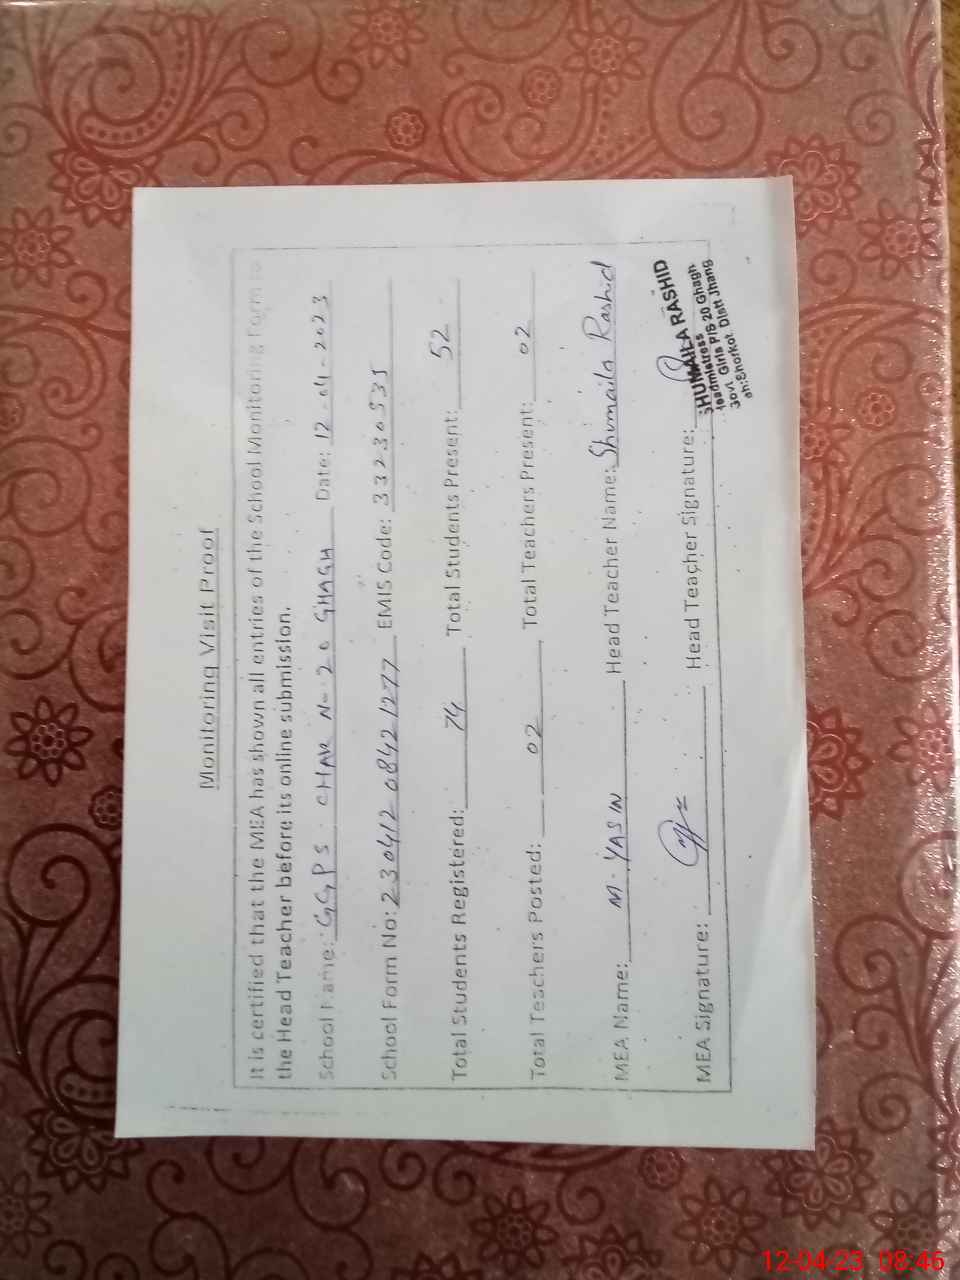 Monitoring Visit Proof
It is certified that the MEA has shown all entries of the School Monitoring Form to
the Head Teacher before its online submission.
School Name: GGPS CHAK No 20 GHAGH Date: 12-04-2023
School Form No: 230412 08421277 EMIS Code: 33230535
Total Students Registered: 74 Total Students Present: 52
Total Teschers Posted: 02 Total Teachers Present: 02
MEA Name: M. YASIN Head Teacher Name: Shumaila Rashid
MEA Signature: Head Teacher Signature:
SHUMAILA RASHID
Headmistress
Govt Girls P/S 20 Ghagh
Shorkot Distt Jhang
12-04-23 08:46